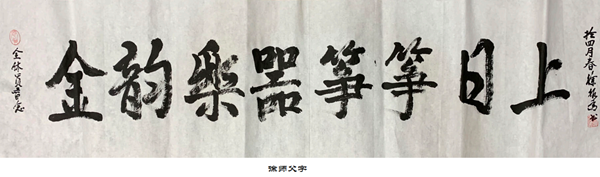 全体員
金韵樂器箏箏日上
拾四月春徐
徐师父字